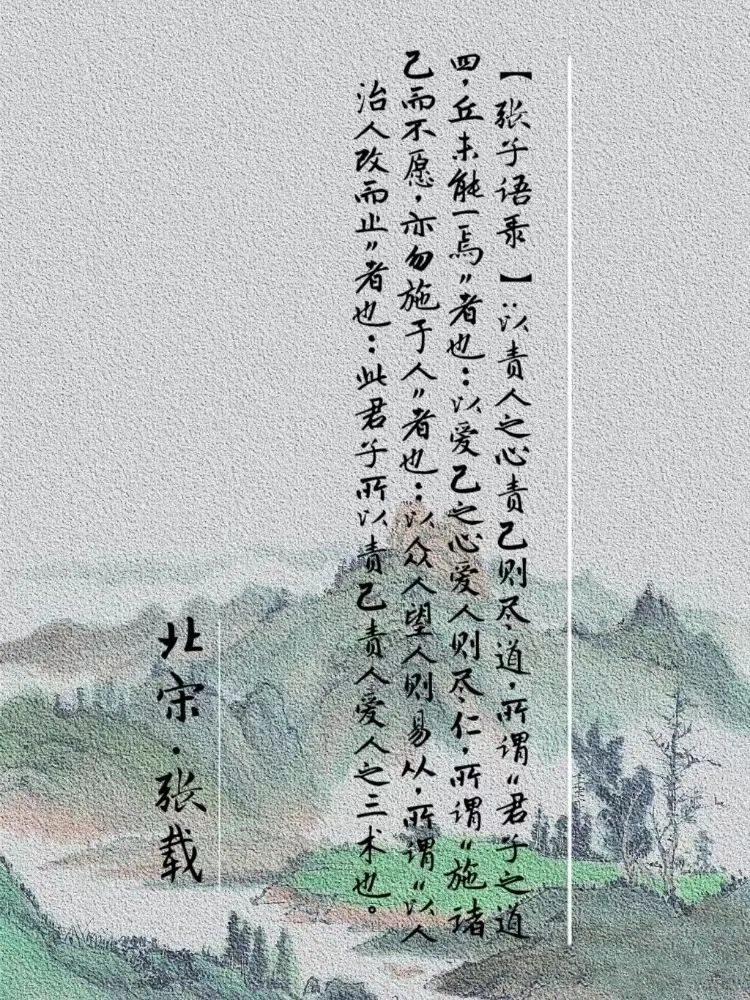 【张子语录】:以责人之心责己则尽道，所谓“君子之道
四，丘未能一焉”者也：以爱己之心爱人则尽仁，所谓“施诸
己而不愿，亦勿施于人”者也：以众人望人则易从，所谓“以人
治人改而止”者也：此君子所以责己责人爱人之三术也。
北宋·张载